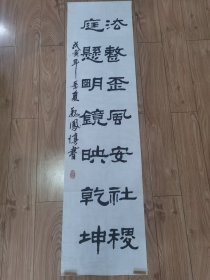 法整歪風安社稷
庭懸明鏡映乾坤
戊寅年夏 鳳書